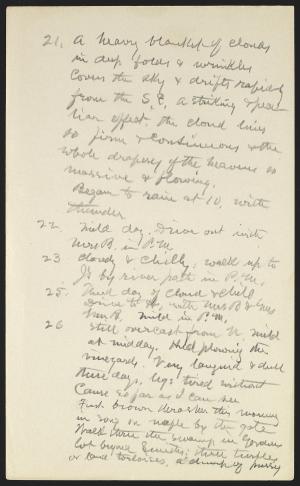 21. A heavy blanket of clouds
in deep folds & wrinkles
covers the sky & drifts rapidly
from the S.E. a striking & pecu-
liar effect. The cloud lines
so firm & continuous & the
whole drapery of the heavens so
massive & flowing.
Began to rain at 10, with
thunder
22. Mild day. Drive out with
Mrs B. in P.M.
23 Cloudy & chilly, walk up to
J's by river path in P.M.
25. Third day of cloud & chill
Drive to with Mrs B & Mrs
B. Mild in P.M.
26 Still overcast from N. mild
at midday. Hard plowing the
vineyards. Very languid & dull
these days, legs tired without
cause so far as I can see
First brown thrasher this morning
in song on maple by the gate
Walk thru the swamp in
lot turtles
or land tortoises, a clump of